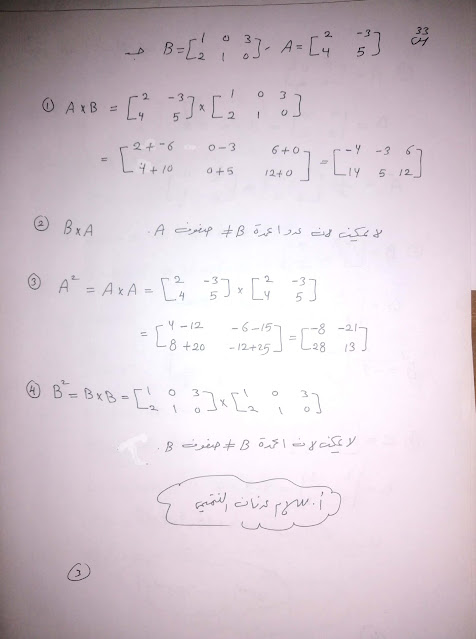 33 س
A = [2 -3 4 5] ، B = [1 0 3 2 1 0] جد
① A × B = [2 -3 4 5] × [1 0 3 2 1 0]
= [2+-6 0-3 6+0 4+10 0+5 12+0] = [-4 -3 6 14 5 12]
② B×A لا يمكن لان عدد اعمدة B ≠ صفوف A.
③ A² = A×A = [2 -3 4 5] × [2 -3 4 5]
= [4-12 -6-15 8+20 -12+25] = [-8 -21 28 13]
④ B² = B×B = [1 0 3 2 1 0] × [1 0 3 2 1 0]
لا يمكن لان اعمدة B ≠ صفوف B.
أ. سلام عدنان